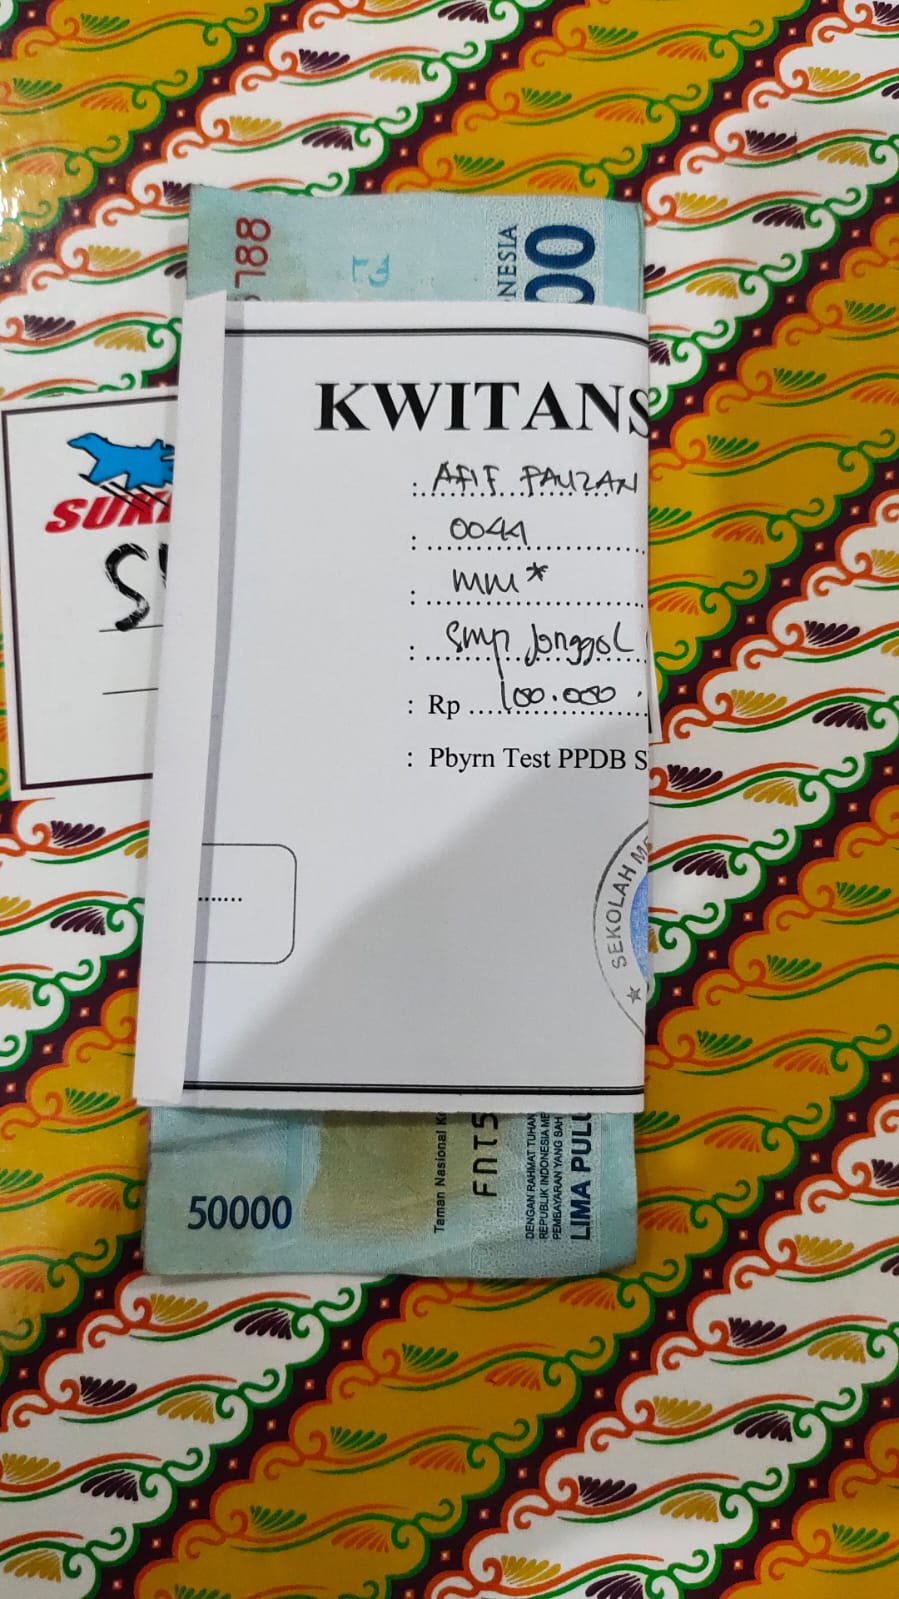 788
NESIA
00
KWITANS
: AFIF FAUZAN
: 0044
: MM*
: SMP Jonggol
: Rp 100.000
: Pbyrn Test PPDB S
SEKOLAH ME
50000
Taman Nasional K
FNT5
DENGAN RAHMAT TUHAN
REPUBLIK INDONESIA ME
PEMBAYARAN YANG SAH
LIMA PULU